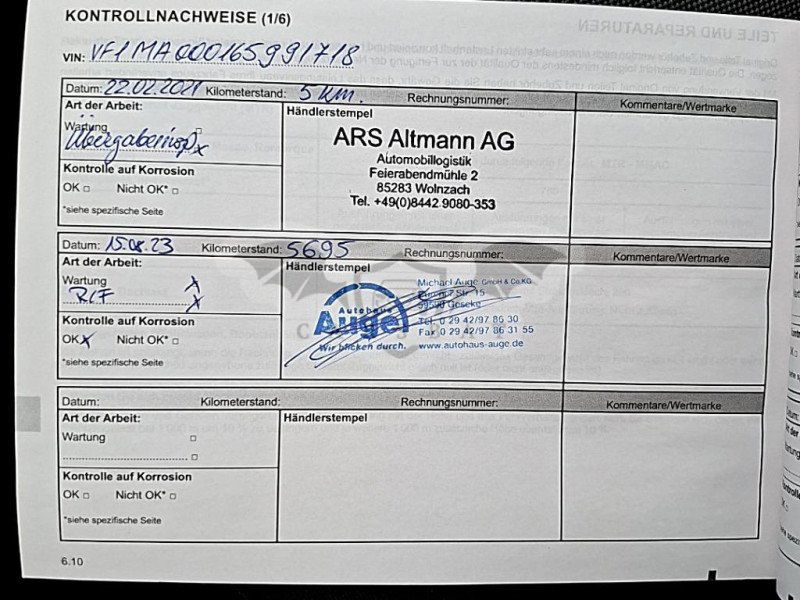 KONTROLLNACHWEISE (1/6)
VIN: VF1MA000165991718
Datum: 22.02.2021 Kilometerstand: 5 km. Rechnungsnummer: Kommentare/Wertmarke
Art der Arbeit: Händlerstempel
Wartung
Übergabeinsp x
Kontrolle auf Korrosion
OK Nicht OK*
*siehe spezifische Seite
ARS Altmann AG
Automobillogistik
Feierabendmühle 2
85283 Wolnzach
Tel. +49(0)8442 9080-353
Datum: 15.08.23 Kilometerstand: 5695 Rechnungsnummer: Kommentare/Wertmarke
Art der Arbeit: Händlerstempel
Wartung x
RLF x
Kontrolle auf Korrosion
OK x Nicht OK*
*siehe spezifische Seite
Autohaus
Auge
Wir blicken durch.
Michael Auge GmbH & Co.KG
Str. 15
59590 Geseke
Tel. 0 29 42/97 86 30
Fax 0 29 42/97 86 31 55
www.autohaus-auge.de
Datum: Kilometerstand: Rechnungsnummer: Kommentare/Wertmarke
Art der Arbeit: Händlerstempel
Wartung
Kontrolle auf Korrosion
OK Nicht OK*
*siehe spezifische Seite
6.10